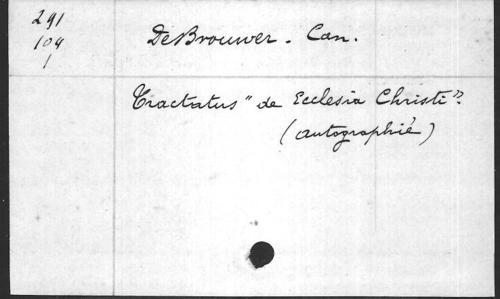 291
104
1
De Brouwer. Can.
Tractatus "de Ecclesia Christi".
(autographié)